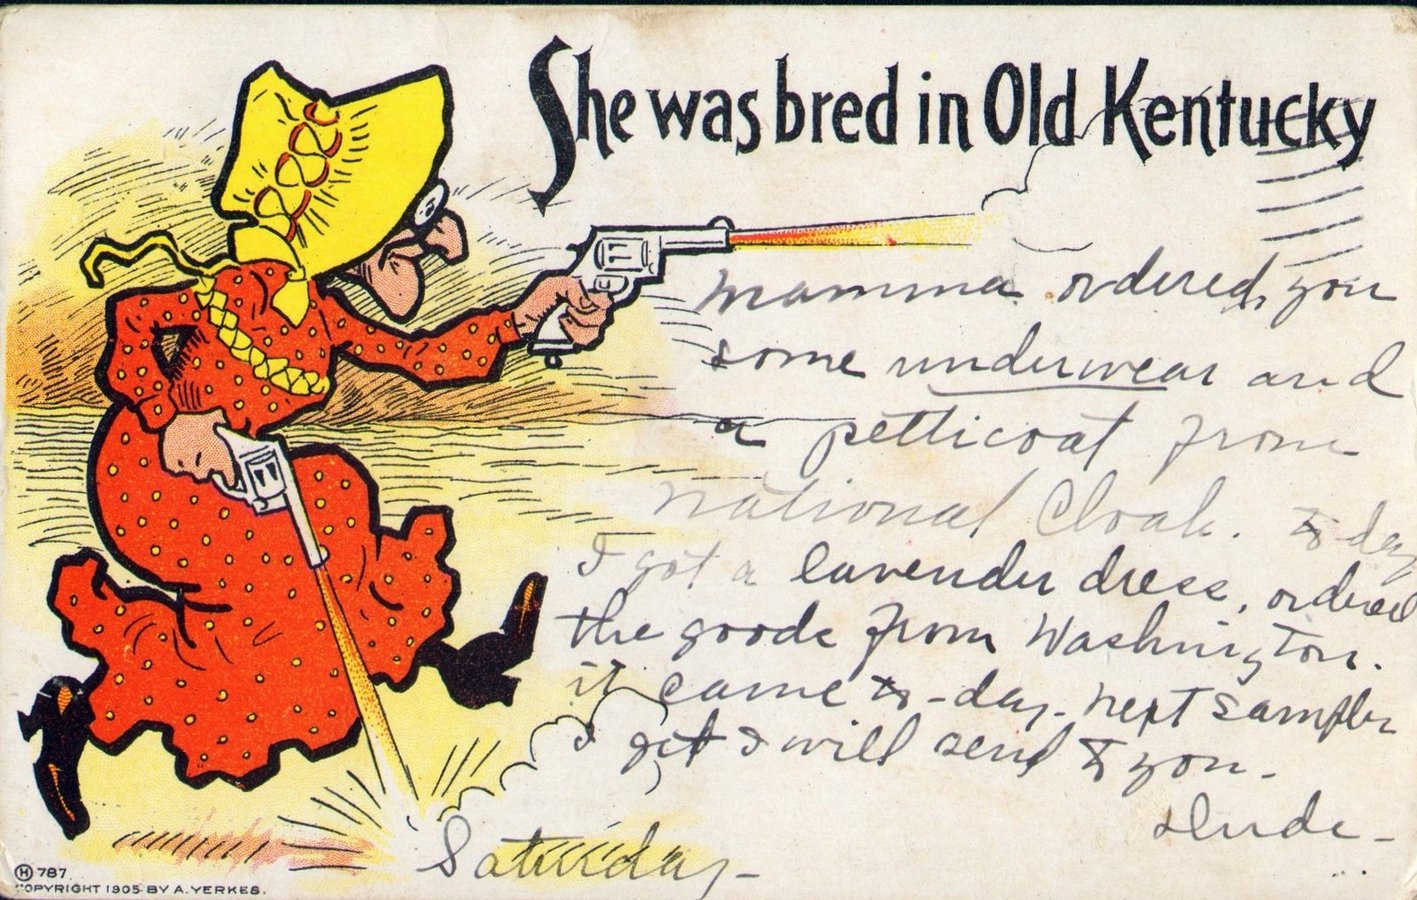 She was bred in Old Kentucky
mamma ordered you
some underwear and
a petticoat from
national Cloak. to-day
I got a lavender dress, ordered
the goods from Washington.
it came to-day. next samples
I get I will send to you.
Saturday-
787
COPYRIGHT 1905 BY A. YERKES.